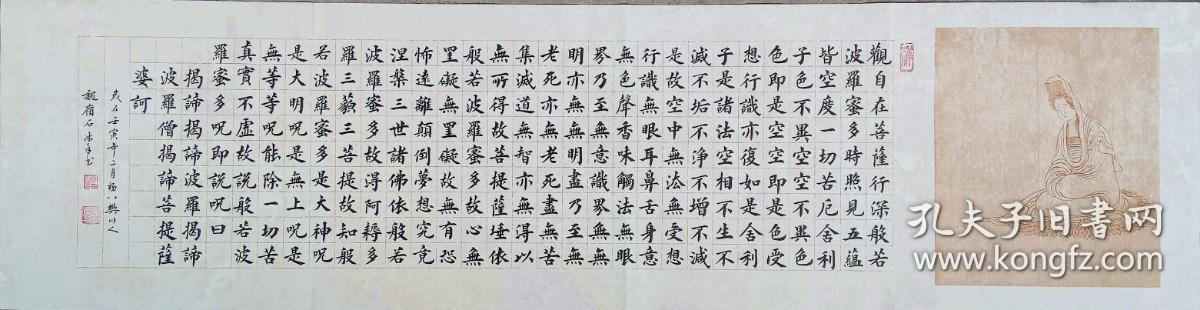 觀自在菩薩行深般若
波羅蜜多時照見五蘊
皆空度一切苦厄舍利
子色不異空空不異色
色即是空空即是色受
想行識亦復如是舍利
子是諸法空相不生不
滅不垢不淨不增不減
是故空中無色無受想
行識無眼耳鼻舌身意
無色聲香味觸法無眼
界乃至無意識界無無
明亦無無明盡乃至無
老死亦無老死盡無苦
集滅道無智亦無得以
無所得故菩提薩埵依
般若波羅蜜多故心無
罣礙無罣礙故無有恐
怖遠離顛倒夢想究竟
涅槃三世諸佛依般若
波羅蜜多故得阿耨多
羅三藐三菩提故知般
若波羅蜜多是大神呪
是大明呪是無上呪是
無等等呪能除一切苦
真實不虛故說般若波
羅蜜多呪即說呪曰
揭諦揭諦波羅揭諦
波羅僧揭諦菩提薩
婆訶
歲在壬寅年二月
孔夫子旧書网
www.kongfz.com